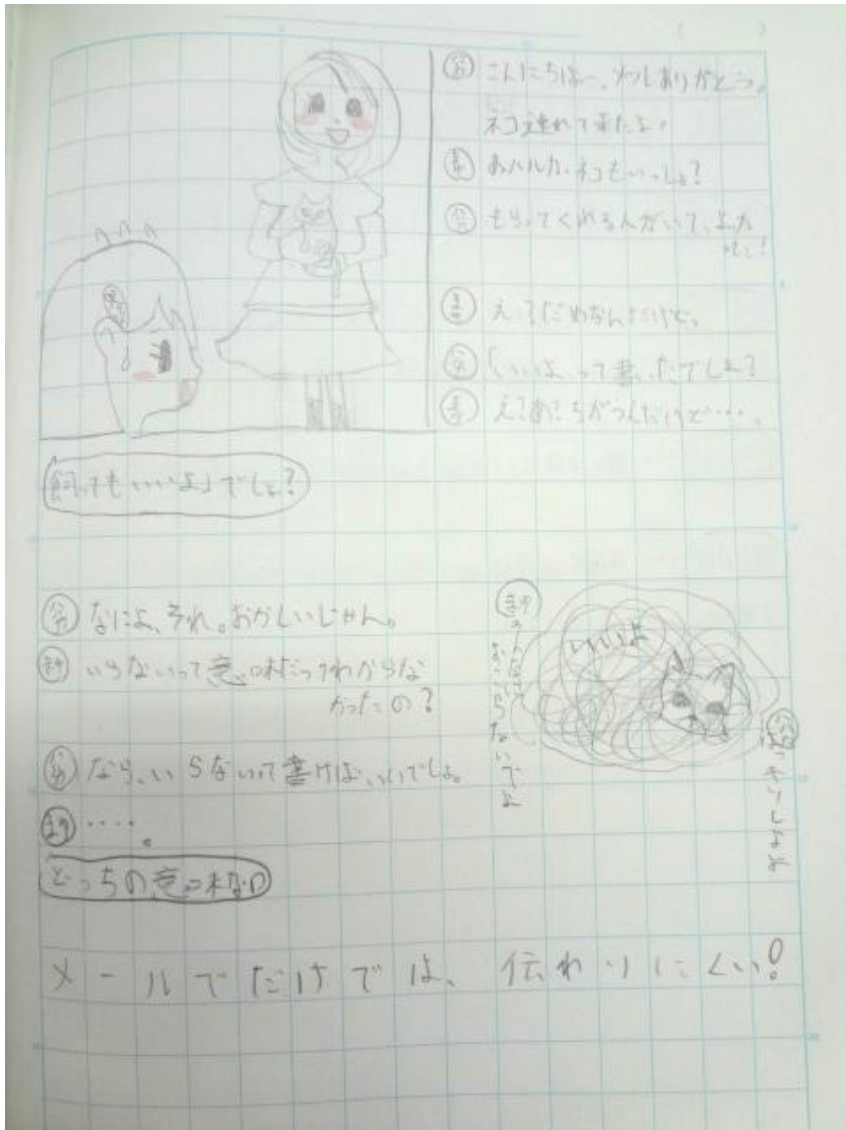 こんにちはー、メールありがとう。
ネコ連れて来たよ。
あハルカ、ネコもいっしょ?
もらってくれる人がいて、よかった
え、?だめなんだけど。
「いいよって書いたでしょ?
え?あ?ちがうんだけど‥‥。
飼ってもいいよ」でしょ?
なによ、それ。おかしいじゃん。
いらないって意味だってわからな
かったの?
なら、いらないって書けばいいでしょ。
まり
‥‥。
どっちの意味なの
まり
いいよ
らないでよ
はっきりしてよ
メールでだけでは、伝わりにくい!